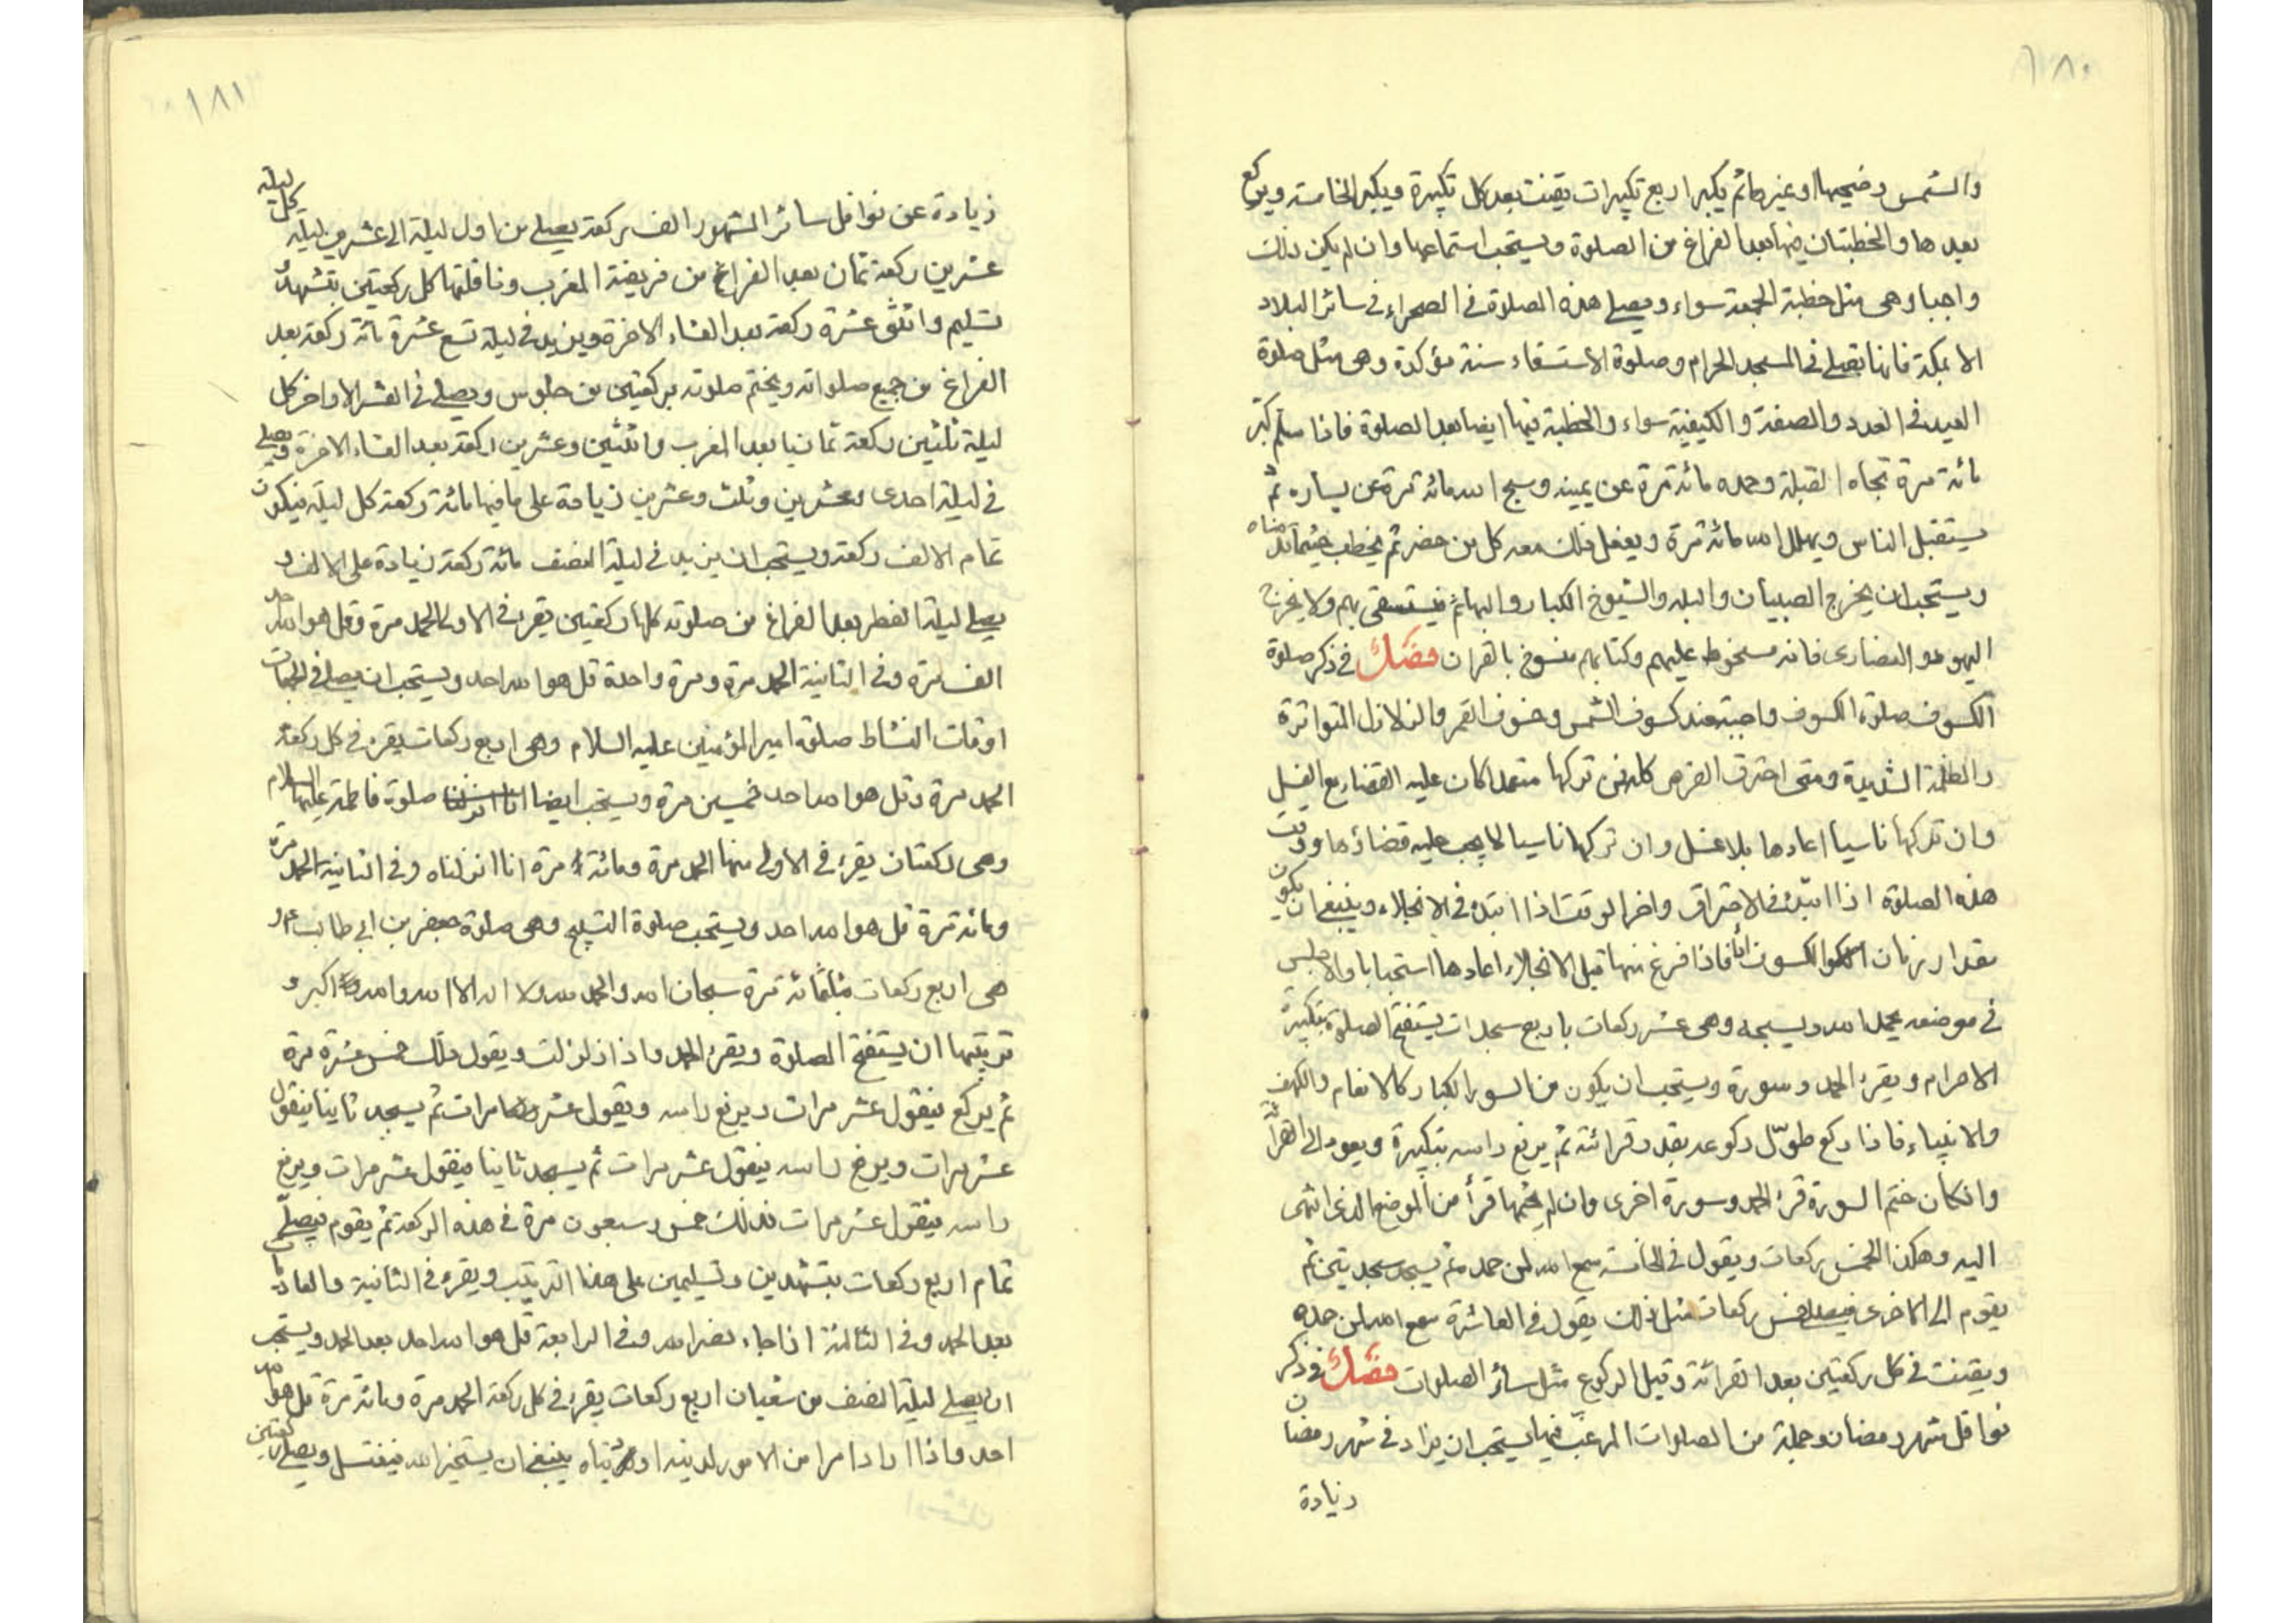 ١٨٠
والشمس وضحيها او غيرهما ثم يكبر اربع تكبيرات يقنت بعد كل تكبيرة ويكبر الخامسة ويركع
بعدها والخطبتان فيها بعد الفراغ من الصلوة ويستحب استماعها وان لم يكن ذلك
واجبا وهى مثل خطبة الجمعة سواء ويصلى هذه الصلاة فى الصحراء فى سائر البلاد
الا بمكة فانها تصلى فى المسجد الحرام وصلوة الاستسقاء سنة مؤكدة وهى مثل صلوة
العيد فى العدد والصفة والكيفية سواء والخطبة فيها ايضا بعد الصلوة فاذا سلم كبّر
مائة مرة تجاه القبلة وحمده مائة مرة عن يمينه وسبح الله مائة مرة عن يساره ثم
يستقبل الناس ويهلل الله مائة مرة ويفعل ذلك معه كل من حضر ثم يخطب
ويستحب ان يخرج الصبيان والبله والشيوخ الكبار والبهائم فيستسقى بهم ولا يخرج
اليهود والنصارى فانه مسخوط عليهم وكتابهم منسوخ بالقران فصل فى ذكر صلوة
الكسوف صلوة الكسوف واجبة عند كسوف الشمس وخسوف القمر والزلازل المتواترة
والظلمة الشديدة ومتى احترق القرص كله فمن تركها متعمدا كان عليه القضاء مع الغسل
وان تركها ناسيا اعادها بلا غسل وان تركها ناسيا لا يجب عليه قضاؤها ووقت
هذه الصلوة اذا ابتدئ فى الاحتراق واخر الوقت اذا ابتدئ فى الانجلاء وينبغى ان يكون
مقدار زمان الكسوف فاذا فرغ منها قبل الانجلاء اعادها استحبابا والا جلس
فى موضعه يحمد الله ويسبحه وهى عشر ركعات باربع سجدات يستفتح الصلوة بتكبيرة
الاحرام ويقرء الحمد وسورة ويستحب ان يكون من السور الكبار كالانعام والكهف
والانبياء فاذا ركع طوّل ركوعه بقدر قرائته ثم يرفع راسه بتكبيرة ويعود الى القراءة
وان كان ختم السورة قرء الحمد وسورة اخرى وان لم يختمها قرأ من الموضع الذى انتهى
اليه وهكذا الخمس ركعات ويقول فى الخامسة سمع الله لمن حمده ثم يسجد سجدتين ثم
يقوم الى الاخرى فيصلى خمس ركعات مثل ذلك يقول فى العاشرة سمع الله لمن حمده
ويقنت فى كل ركعتين بعد القرائة وقبل الركوع مثل سائر الصلوات فصل فى ذكر
نوافل شهر رمضان وجملة من الصلوات المرغب فيها يستحب ان يزاد فى شهر رمضان
زيادة
١٨١
زيادة عن نوافل سائر الشهور الف ركعة يصلى من اول ليلة الى عشرين ليلة كل ليلة
عشرين ركعة ثمان بعد الفراغ من فريضة المغرب ونافلتها كل ركعتين بتشهد و
تسليم واثنتى عشرة ركعة بعد العشاء الاخرة ويزيد فى ليلة تسع عشرة مائة ركعة بعد
الفراغ من جميع صلواته ويختم صلوته بركعتين من جلوس ويصلى فى العشر الاواخر كل
ليلة ثلثين ركعة ثمانيا بعد المغرب واثنتين وعشرين ركعة بعد العشاء الاخرة ويصلى
فى ليلة احدى وعشرين وثلث وعشرين زيادة على ما فيها مائة ركعة كل ليلة فيكون
تمام الالف ركعة ويستحب ان يزيد فى ليلة النصف مائة ركعة زيادة على الالف و
يصلى ليلة الفطر بعد الفراغ من صلوته كلها ركعتين يقرء فى الاولى الحمد مرة وقل هو الله احد
الف مرة وفى الثانية الحمد مرة ومرة واحدة قل هو الله احد ويستحب ان يصلى فى
اوقات النشاط صلوة امير المؤمنين عليه السلام وهى اربع ركعات يقرء فى كل ركعة
الحمد مرة وقل هو الله احد خمسين مرة ويستحب ايضا صلوة فاطمة عليها السلام
وهى ركعتان يقرء فى الاولى منهما الحمد مرة ومائة مرة انا انزلناه وفى الثانية الحمد مرة
ومائة مرة قل هو الله احد ويستحب صلوة التسبيح وهى صلوة جعفر بن ابى طالب ع و
هى اربع ركعات بثلثمائة مرة سبحان الله والحمد لله ولا اله الا الله والله اكبر و
ترتيبها ان يستفتح الصلوة ويقرء الحمد واذا زلزلت ويقول ذلك خمس عشرة مرة
ثم يركع فيقول عشر مرات ويرفع راسه ويقول عشر مرات ثم يسجد ثانيا فيقول
عشر مرات ويرفع راسه فيقول عشر مرات ثم يسجد ثانيا فيقول عشر مرات ويرفع
راسه فيقول عشر مرات فذلك خمس وسبعون مرة فى هذه الركعة ثم يقوم فيصلى
تمام اربع ركعات بتشهدين وتسليمين على هذا الترتيب ويقرء فى الثانية والعاديات
بعد الحمد وفى الثالثة اذا جاء نصر الله وفى الرابعة قل هو الله احد بعد الحمد ويستحب
ان يصلى ليلة النصف من شعبان اربع ركعات يقرء فى كل ركعة الحمد مرة ومائة مرة قل هو الله
احد واذا اراد امرا من الامور لدينه او دنياه ينبغى ان يستخير الله فيغتسل ويصلى ركعتين